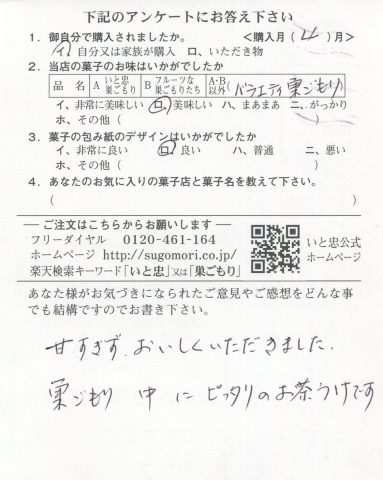 下記のアンケートにお答え下さい
1．御自分で購入されましたか。 ＜購入月（4）月＞
イ、自分又は家族が購入 ロ、いただき物
2．当店の菓子のお味はいかがでしたか
品 名 A いと忠巣ごもり B フルーツな巣ごもりたち A・B以外（バラエティ 巣ごもり）
イ、非常に美味しい ロ、美味しい ハ、まあまあ ニ、がっかり
ホ、その他（ ）
3．菓子の包み紙のデザインはいかがでしたか
イ、非常に良い ロ、良い ハ、普通 ニ、悪い
ホ、その他（ ）
4．あなたのお気に入りの菓子店と菓子名を教えて下さい。
（ ）
― ご注文はこちらからお願いします ―
フリーダイヤル 0120-461-164
ホームページ http://sugomori.co.jp/
楽天検索キーワード「いと忠」又は「巣ごもり」
いと忠公式
ホームページ
あなた様がお気づきになられたご意見やご感想をどんな事
でも結構ですのでお書き下さい。
甘すぎず、おいしくいただきました。
巣ごもり 中 に ピッタリのお茶うけです